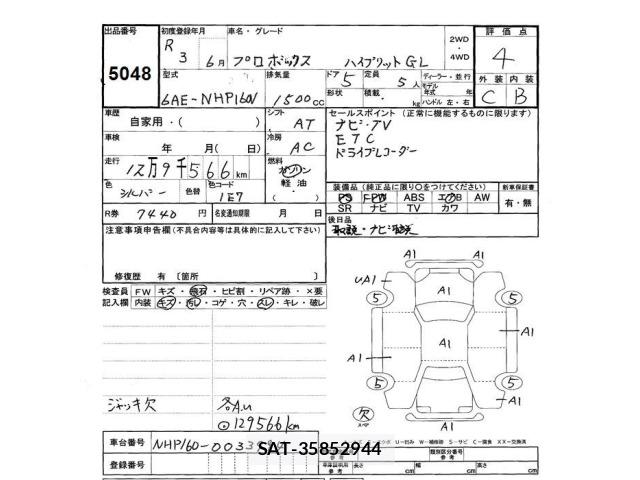 出品番号 初度登録年月 車名・グレード 2WD・4WD 評価点
5048 R3 6月 プロボックス ハイブリットGL 4
型式 排気量 ドア 5 定員 5人 ディーラー・並行 外装 内装
6AE-NHP160V 1500cc 形状 積載 kg モデル年式 年 ハンドル 左・右 C B
車歴 自家用・( ) シフト AT セールスポイント (正常に機能するものに限ります)
ナビ・TV
車検 年 月(日) 冷房 AC ETC
ドライブレコーダー
走行 12万9千566km 燃料 ガソリン 軽油・( )
色 シルバー 色替 色コード 1E7 装備品(純正品に限り○をつけてください) 新車保証書
PS PW ABS エアB AW 有・無
R券 7440円 名変通知期限 月 日 SR ナビ TV カワ
注意事項申告欄(不具合内容等は具体的に記入して下さい) 後日品
取説・ナビ取説
修復歴 有〔箇所 〕
検査員 FW キズ・飛石・ヒビ割・リペア跡・×要
記入欄 内装 キズ・汚レ・コゲ・穴・スレ・キレ・破レ
A1 A1
UA1 A1
5 5
A1 A1
A1
5 5
A1 A1
欠 スペア
A1
ジャッキ欠 各A.u
⊙129566km
車台番号 NHP160-0033
SAT-35852944
登録番号
類別区分番号
長さ cm 幅 cm 高さ cm